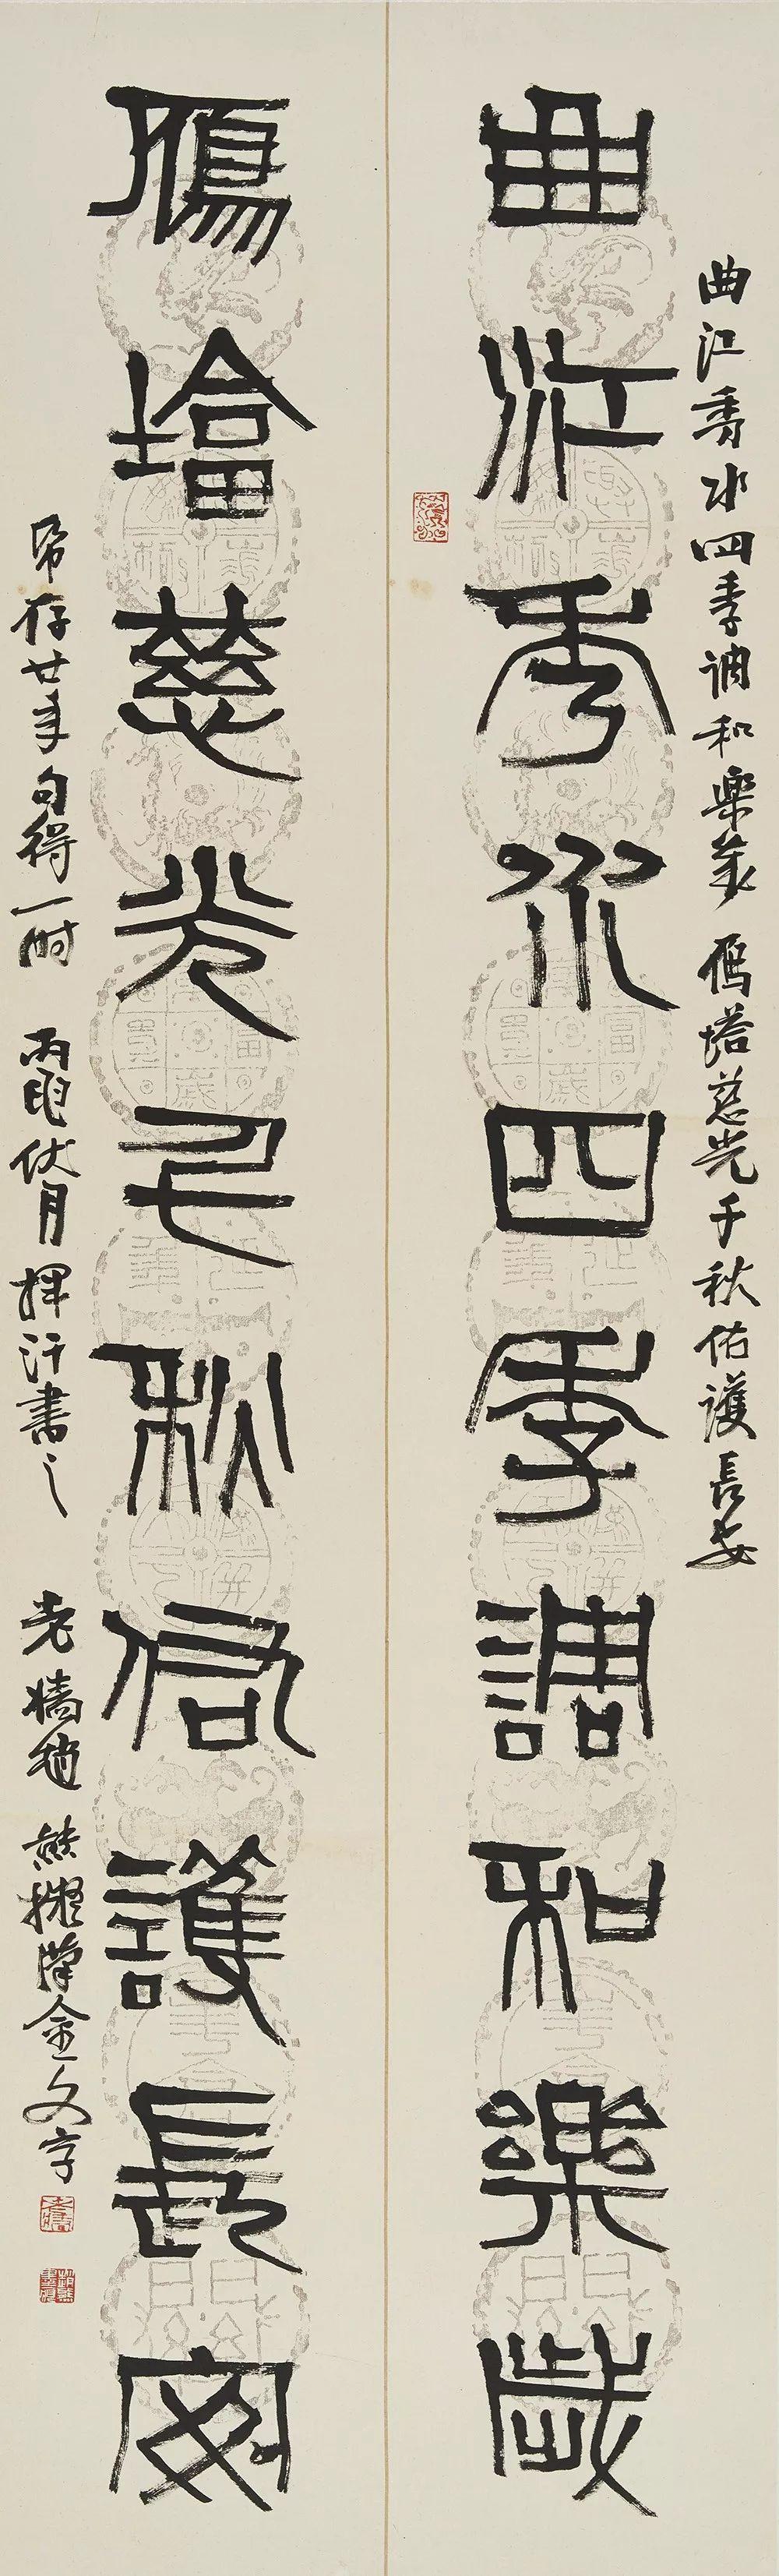 曲江秀水四季調和樂歲
曲江秀水四季調和樂歲 雁塔慈光千秋佑護長安
鴈塔慈光千秋佑護長安
帚存廿年句得一時 丙申伏月揮汗書之 老墻趙熊擬漢金文字